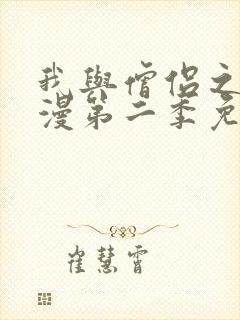 我與僧侶之
漫第二季免
崔慧霄